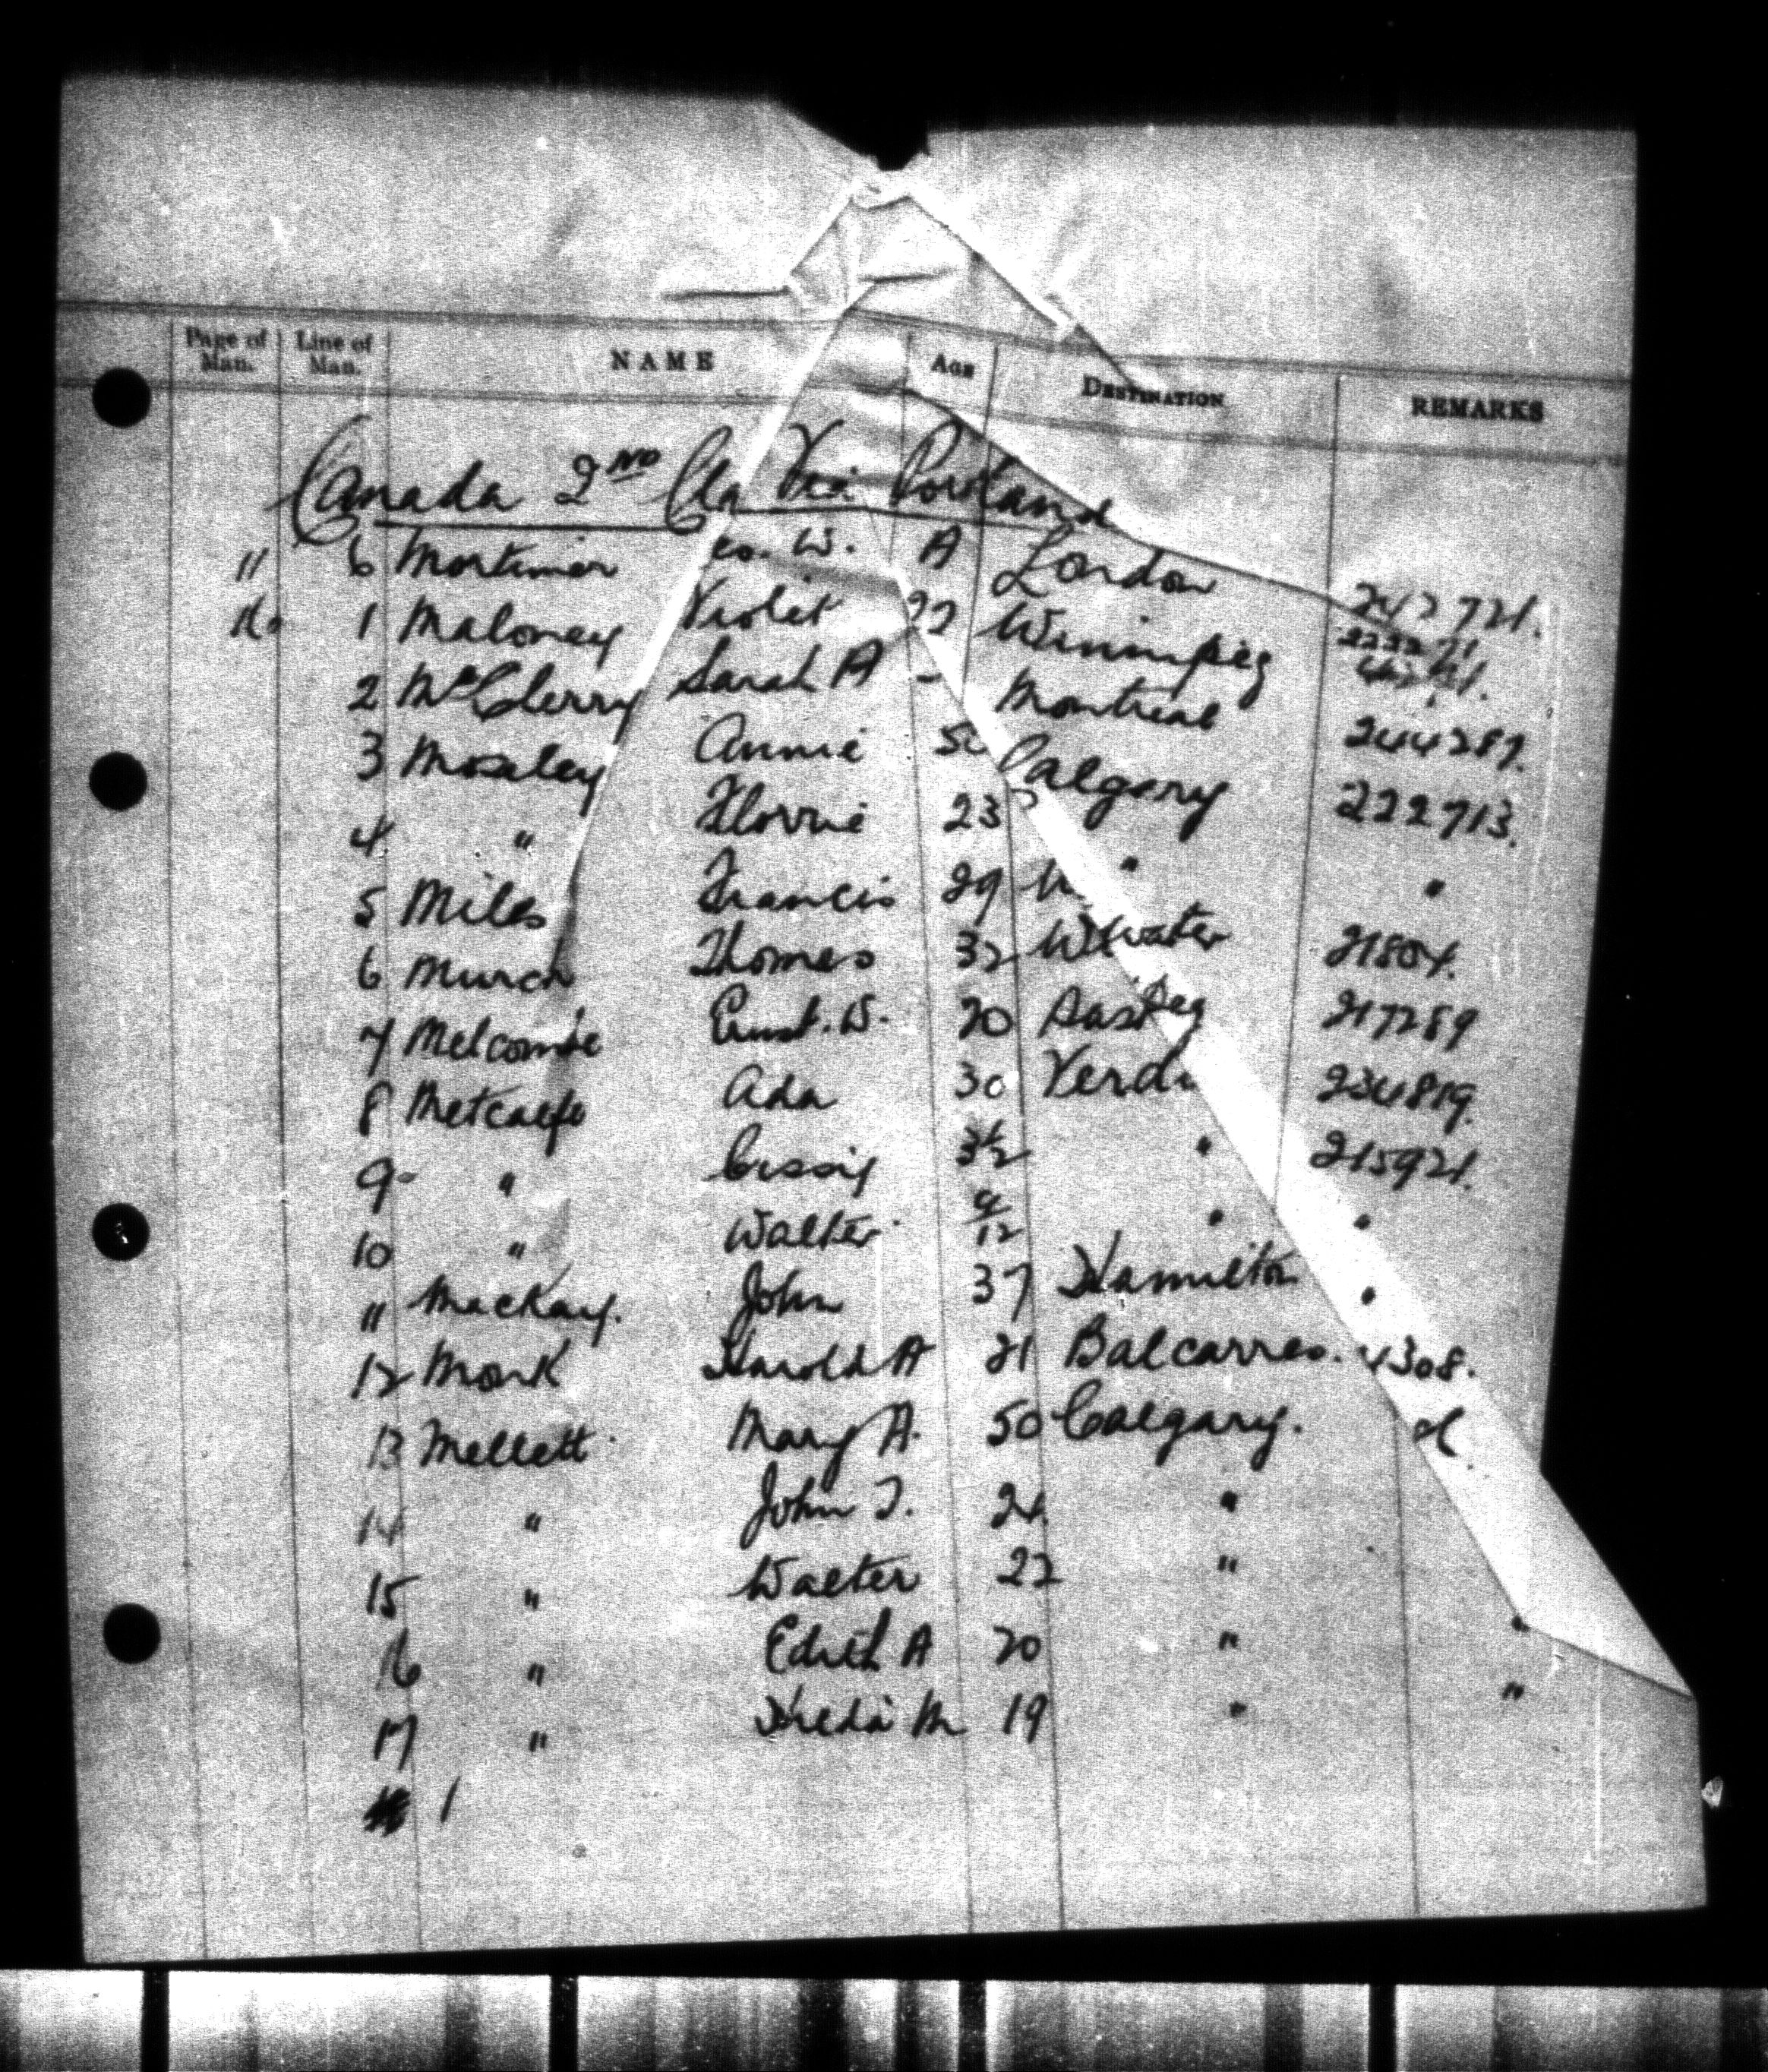 Page of Man. Line of Man. NAME AGE DESTINATION REMARKS
Canada 2ND Cla Via Portland
11 6 Mortimer eo. W. A London 242721.
16 1 Maloney Violet 22 Winnipeg
2 McClerry Sarah A - Montreal 244287.
3 Moseley Annie 50 Calgary 222713.
4 " Florrie 23 " "
5 Miles Francis 29 21804.
6 Murch Thomas 32 217289
7 Melcombe Ernst. W. 20 234819.
8 Metcalfe Ada 30 215921.
9 " Cissy 3½ " "
10 " Walter 9/12 " "
11 Mackay. John 37 Hamilton 4308.
12 Monk Harold A 21 Balcarres.
13 Mellett Mary A. 50 Calgary.
14 " John T. 24. "
15 " Walter 22 "
16 " Edith A 20 " "
17 " Freda M 19 " "
1